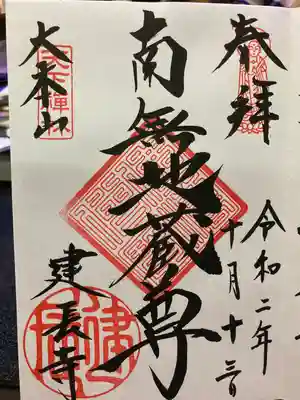 奉拝
令和二年
十月十三日
南無地蔵尊
大本山
建長寺